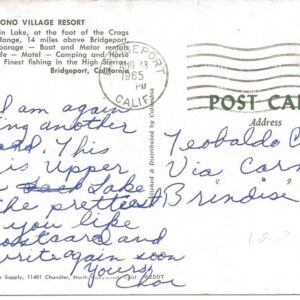 ONO VILLAGE RESORT
in Lake, at the foot of the Crags
Range, 14 miles above Bridgeport,
orage — Boat and Motor rentals
fe — Motel — Camping and Horse
Finest fishing in the High Sierras
Bridgeport, California
PORT
13
1965
PM
CALIF
POST CA
Address
am again
ing another
This
is Upper
Lake
the prettiest
you like
postcard and
write again soon
Yours,
Teobaldo
Via
Brindisi
Published & Distributed by
Supply, 11401 Chandler, North Hollywood, California